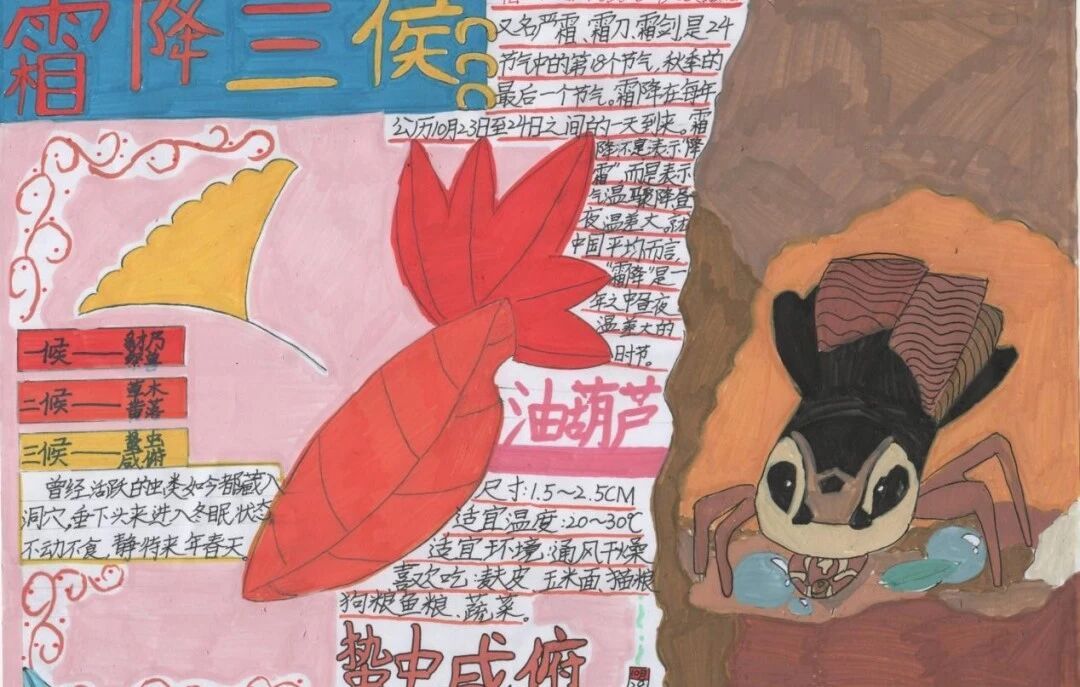 霜降三候
又名严霜、霜刀、霜剑,是24
节气中的第18个节气,秋季的
最后一个节气。霜降在每年
公历10月23日至24日之间的一天到来。霜
降不是表示"降
霜",而是表示
气温骤降昼
夜温差大。就
中国平均而言,
"霜降"是一
年之中昼夜
温差大的
时节。
一候——豺乃祭兽
二候——草木黄落
三候——蛰虫咸俯
曾经活跃的虫类如今都藏入
洞穴,垂下头来进入冬眠状态
不动不食,静待来年春天
油葫芦
尺寸:1.5~2.5CM
适宜温度:20~30℃
适宜环境:通风干燥
喜欢吃:麸皮、玉米面、猫粮
狗粮鱼粮、蔬菜。
蛰虫咸俯